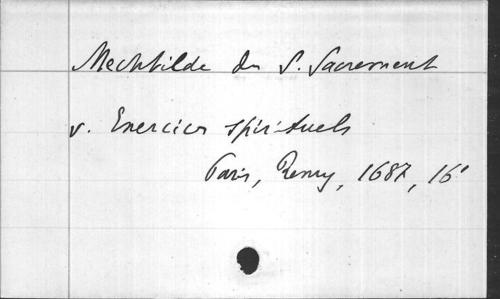 Mechtilde du S. Sacrement
v. Exercices spirituels
Paris, Remy, 1687, 16°